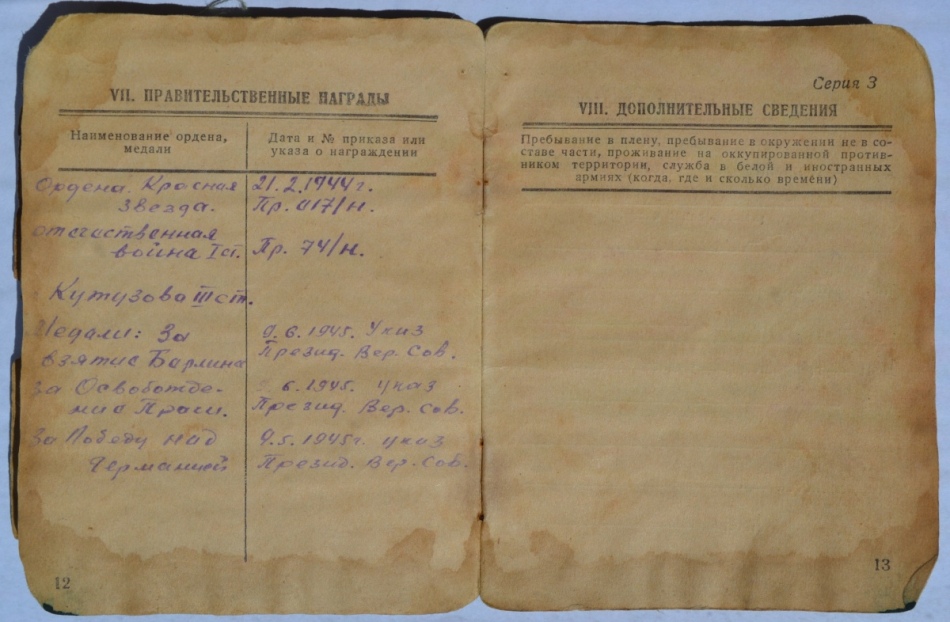 VII. ПРАВИТЕЛЬСТВЕННЫЕ НАГРАДЫ
Наименование ордена, медали
Дата и № приказа или указа о награждении
Ордена. Красная 21.2.1944 г.
Звезда. Пр. 017/н.
отечественная
война I ст. Пр. 74/н.
Кутузова III ст.
Медали: За 9.6.1945. Указ
взятие Берлина Презид. Вер. Сов.
За Освобожде- 6.1945. указ
ние Праги. Презид. Вер. Сов.
За Победу над 9.5.1945г. указ
Германией Презид. Вер. Сов.
12
Серия 3
VIII. ДОПОЛНИТЕЛЬНЫЕ СВЕДЕНИЯ
Пребывание в плену, пребывание в окружении не в со-
ставе части, проживание на оккупированной против-
ником территории, служба в белой и иностранных
армиях (когда, где и сколько времени)
13